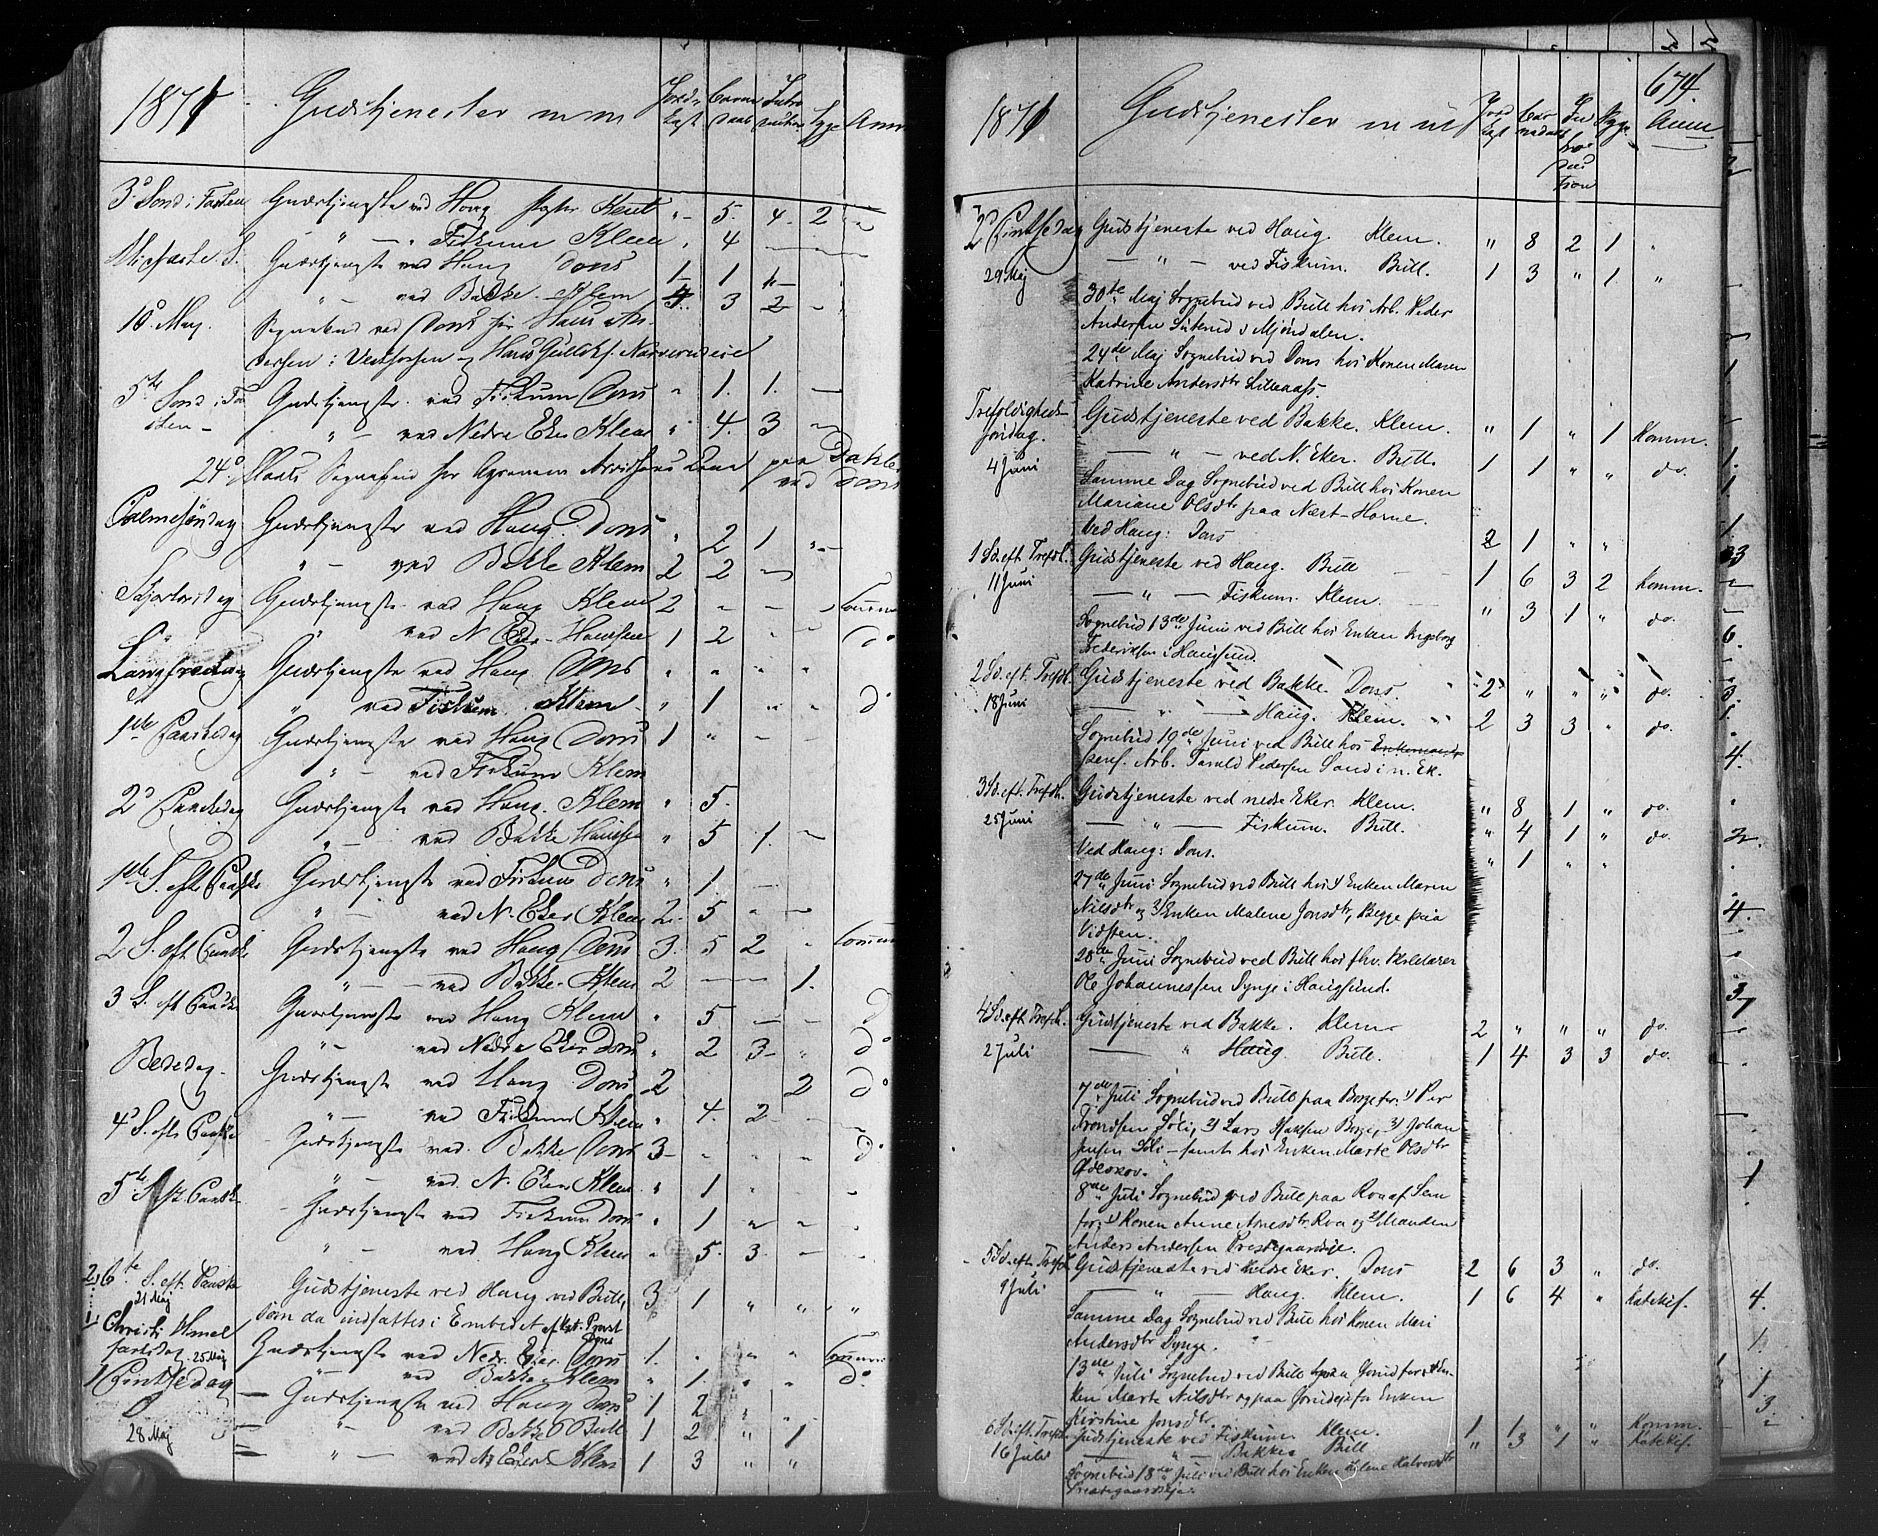 1871 Gudstjenester m m Jord- Barne Intro Syge Anm
kast daab duktion
3d Sønd i Fasten Gudstjeneste ved Haug Klem " 5. 4. 2
" — " Fiskum Klem " 4 — —
Midfaste S. Gudstjeneste ved Haug Dons 1 1 " —
" — ved Bakke Klem 3 2 —
10d Marts Sognebud ved Dons for Hans An-
dersen i Vestfossen og Hans Gulliks. Narverudeie
5te Sønd i Fa- Gudstjeneste ved Fiskum Dons " 1. 1. —
sten — " — ved Nedre Eker Klem " 4. 3 —
24d Marts Sognebud for paa
ved Dons
Palmesøndag Gudstjeneste ved Haug Dons " 2 1 " —
" — ved Bakke Klem 2 2 —
Skjærtorsdag Gudstjeneste ved Haug Klem 2 " — " Commun
ved N. Eker Hanssen 1 2 — do
Langfredag Gudstjeneste ved Haug Dons " " " "
" ved Fiskum Klem " 1 " " do
1ste Paaskedag Gudstjeneste ved Haug Dons 1 " — —
" — ved Fiskum Klem
2d Paaskedag Gudstjeneste ved Haug Klem " 5.
" — ved Bakke Hanssen " 5 1. —
1ste S. efter Paaske Gudstjeneste ved Fiskum Dons " 1 —
" — ved N. Eker Klem 2. 5 " —
2 S. eft Paaske Gudstjeneste ved Haug Dons 3. 5 2 " Commun
" — ved Bakke Klem 2 — — 1.
3 S. eft Paaske Gudstjeneste ved Haug Klem " 5. — — do
" — ved Nedre Eker Dons " 2 3 — " do
Bededag Gudstjeneste ved Haug Dons 2 2 do
" — ved Fiskum Klem " 4. 2 —
4d S. efter Paaske Gudstjeneste ved Bakke Dons 3 — " " " do
" — ved N. Eker Klem " 1 " "
5te S. eft. Paaske Gudstjeneste ved Fiskum Dons " 1 " — "
" — ved Haug Klem " 5. 3. — "
2) 6te S. eft. Paaske Gudstjeneste ved Haug ved Bull, 3 1 " " " "
21 Maj som da indsattes i Embedet af Kst. Provst
Dons
1) Christi Himmel Gudstjeneste ved Nedr. Eker Dons 1. " " " Commun
fartsdag 25 Maj ved Bakke Klem " 1. " " do
1 Pintsedag — Gudstjeneste ved Haug Dons 1 2 " "
28 Maj — " — ved Bakke Bull 1 2 " 1
= " — ved N. Eker Klem 1 3 " "
674.
1871 Gudstjenester m m Jord Bar In Syge Anm
kast nedaab tro
duk
tion
2d Pintsedag Gudstjeneste ved Haug. Klem. " 8 2 1 "
29 Maj — " — ved Fiskum. Bull. 1 3 " 1 "
30te Maj Sognebud ved Bull hos Arb. Peder
Andersen i Mjøndalen.
24de Maj Sognebud ved Dons hos Konen Maren
Katrine Andersdtr Lilleaas.
Trefoldigheds- Gudstjeneste ved Bakke. Klem. " 1 " 1 Komm.
søndag. — " — ved N. Eker. Bull. 1 1 " " do.
4 Juni Samme Dag Sognebud ved Bull hos Konen
Mariane Olsdtr paa Næst-Horne.
Ved Haug: Dons 2 1 " "
1 Sd. eft. Trefdh. Gudstjeneste ved Haug. Bull 1 6 3 2 Komm.
11 Juni — " — Fiskum. Klem. " 3 1 " do.
Sognebud 13de Juni ved Bull hos Enken Ingeborg
Frederiksen i Haugsund.
2 Sd. eft. Trefdh. Gudstjeneste ved Bakke. Dons. 2 " " " do.
18 Juni — " — Haug. Klem. 2 3 3 " do.
Sognebud 19de Juni ved Bull hos
pens. Arb. Pedersen Sand i n. Ek.
3 Sd. eft. Trefdh. Gudstjeneste ved nedre Eker. Klem. " 8 1 " do.
25 Juni — " — Fiskum. Bull. " 4 1 " do.
Ved Haug: Dons. " 1 " "
27de Juni Sognebud ved Bull hos 1) Enken Maren
Nilsdtr og 2) Enken Malene Jonsdtr, Begge paa
Vidsten.
28de Juni Sognebud ved Bull hos fhv. Skoleærer
Ole Johannessen Dynge i Haugsund.
4 Sd. eft. Trefdh. Gudstjeneste ved Bakke. Klem. 2 " " " do.
2 Juli — " Haug Bull. 1 4 3 3 do.
7de Juli Sognebud ved Bull paa Borge for 1) Per
Trondsen Solli, 2) Lars Isaksen Borge, 3) Johan
Jensen Solli — samt hos Enken Marte Olsdtr
8de Juli Sognebud ved Bull paa Roa af Sem
for 1) Konen Anne Arnesdtr. Roa og 2) Manden
Anders Andersen Prestegaardseje.
5 Sd. eft. Trefdh. Gudstjeneste ved nedre Eker. Dons 2 6 3 " do.
9 Juli — " — Haug. Klem. 1 6 4 " Katekis.
Samme Dag Sognebud ved Bull hos Konen Mari
Andersdtr Dynge.
13de Juli Sognebud ved Bull paa Horne for En-
ken Marte Nilsdtr og paa for Enken
Kirstine Jonsdtr.
6 Sd. eft. Tref. Gudstjeneste ved Fiskum Klem. 1 1 " " Komm.
16 Juli — " — Bakke Bull " 3 1 " Katekis.
Sognebud 18de Juli ved Bull hos Enken Helene Halvorsdtr
Prestegaardseje.